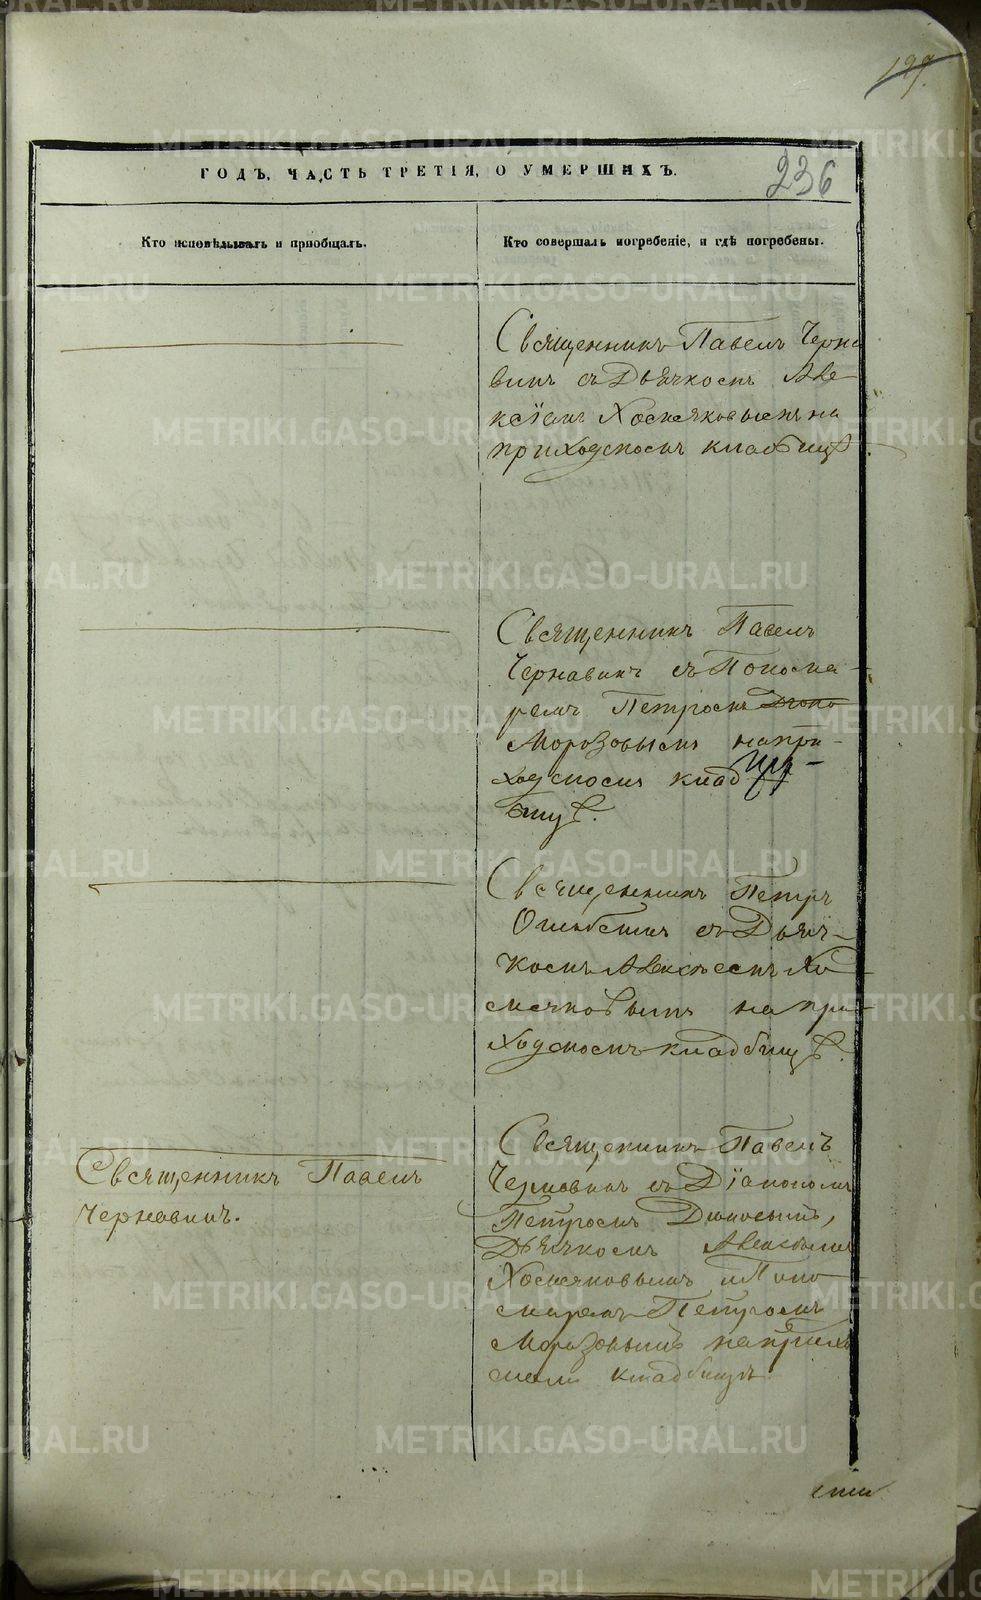 199.
236
ГОДЪ, ЧАСТЬ ТРЕТІЯ, О УМЕРШИХЪ.
Кто исповѣдывалъ и пріобщалъ.
Кто совершалъ погребеніе, и гдѣ погребены.
Священникъ Павелъ Черна
винъ съ Дьячкомъ Але-
ксіемъ Хомяковымъ на
приходскомъ кладбищѣ.
Священникъ Павелъ
Чернавинъ съ Понома-
ремъ Петромъ
Морозовымъ на при-
ходскомъ клад
бищѣ.
Священникъ Петръ
съ Дьяч-
комъ Алексѣемъ Хо-
мяковымъ на при-
ходскомъ кладбищѣ.
Священникъ Павелъ
Чернавинъ.
Священникъ Павелъ
Чернавинъ съ Діакономъ
Петромъ
Дьячкомъ Алексѣемъ
Хомяковымъ и Поно
маремъ Петромъ
Морозовымъ на приход
скомъ кладбищѣ.
METRIKI.GASO-URAL.RU